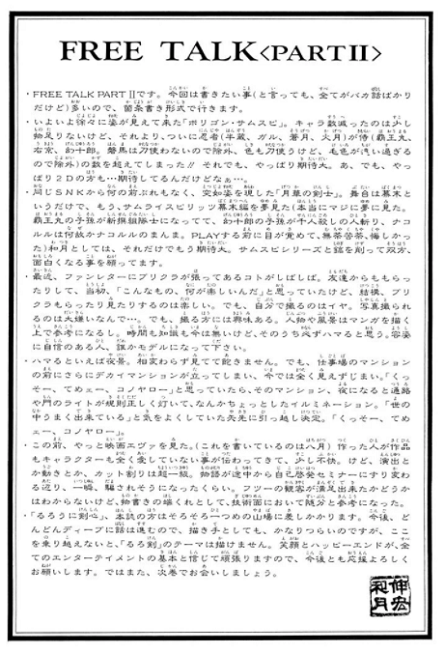 FREE TALK<PART II>
・FREE TALK PART IIです。今回は書きたい事(と言っても、全てがバカ話ばかり
だけど)多いので、箇条書き形式で行きます。
・いよいよ徐々に姿が見えて来た「ポリゴン・サムスピ」。キャラ数減ったのは少し
足りないけど、それより、ついに忍者(半蔵、ガル、蒼月、火月)が侍(覇王丸、
右京、幻十郎。慶寅は刀使わないので除外、色も刀使うけど、過ぎる
ので除外)の数を越えてしまった!! それでも、やっぱり期待大。あ、でも、やっ
ぱり2Dの方も…期待してるんだけどなぁ…。
・同じSNKから何の前ぶれもなく、突如姿を現した「月華の剣士」。舞台は幕末と
いうだけで、もう、サムライスピリッツ幕末編を夢見た(本当にマジに夢に見た。
覇王丸の子孫が新撰組隊士になってて、幻十郎の子孫が十人殺しの人斬り、ナコ
ルルは何故かナコルルのまんま。PLAYする前に目が覚めて、無茶苦茶、悔しかっ
た)和月としては、それだけでもう期待大。サムスピシリーズと鎬を削って双方、
面白くなる事を願ってます。
・最近、ファンレターにプリクラが張ってあるコトがしばしば。友達からももらっ
たりして、当初、「こんなもの、何が楽しいんだ」と思っていたけど、結構、プリ
クラもらったり見たりするのは楽しい。でも、自分で撮るのはイヤ。写真撮られ
るのは大嫌いなんで…。でも、撮る方には興味ある。人物や風景はマンガを描く
上で参考になるし。時間も知識も今は無いけど、そのうち必ずハマると思う。容姿
に自信のある人、誰かモデルになって下さい。
・ハマるといえば夜景。相変わらず見てて飽きません。でも、仕事場のマンション
の前にさらにデカイマンションが立ってしまい、今では全く見えずじまい。「くっ
そー、てめェー、コノヤロー」と思っていたら、そのマンション、夜になると通路
や門のライトが規則正しく灯いて、なんかちょっとしたイルミネーション。「世の
中うまく出来ている」と気をよくしていた矢先に引っ越し決定。「くっそー、てめ
ェー、コノヤロー」。
・この前、やっと映画エヴァを見た。(これを書いているのは八月)作った人が作品
もキャラクターも全く愛していない事が伝わってきて、少し不快。けど、演出と
か動きとか、カット割りは超一級。物語が途中から自己啓発セミナーにすり変わ
る辺り、一瞬、騙されそうになったくらい。フツーの観客が満足出来たかどうか
はわからないけど、絵書きの端くれとして、技術面において随分と参考になった。
・「るろうに剣心」、本誌の方はそろそろ一つめの山場に差しかかります。今後、ど
んどんディープに話は進むので、描き手としても、かなりつらいのですが、ここ
を乗り越えないと、「るろ剣」のテーマは描けません。笑顔とハッピーエンドが、全
てのエンターテイメントの基本と信じて頑張りますので、今後とも応援よろしく
お願いします。ではまた、次巻でお会いしましょう。
和月
伸宏